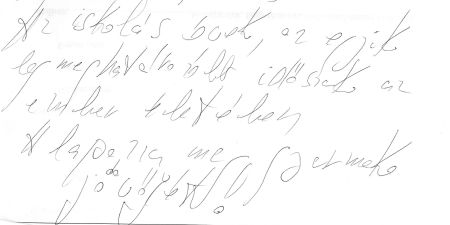 Az iskolás évek, az egyik
legmeghatározóbb időszak az
ember életében
Alapozza meg gyermeke
jövőjét!